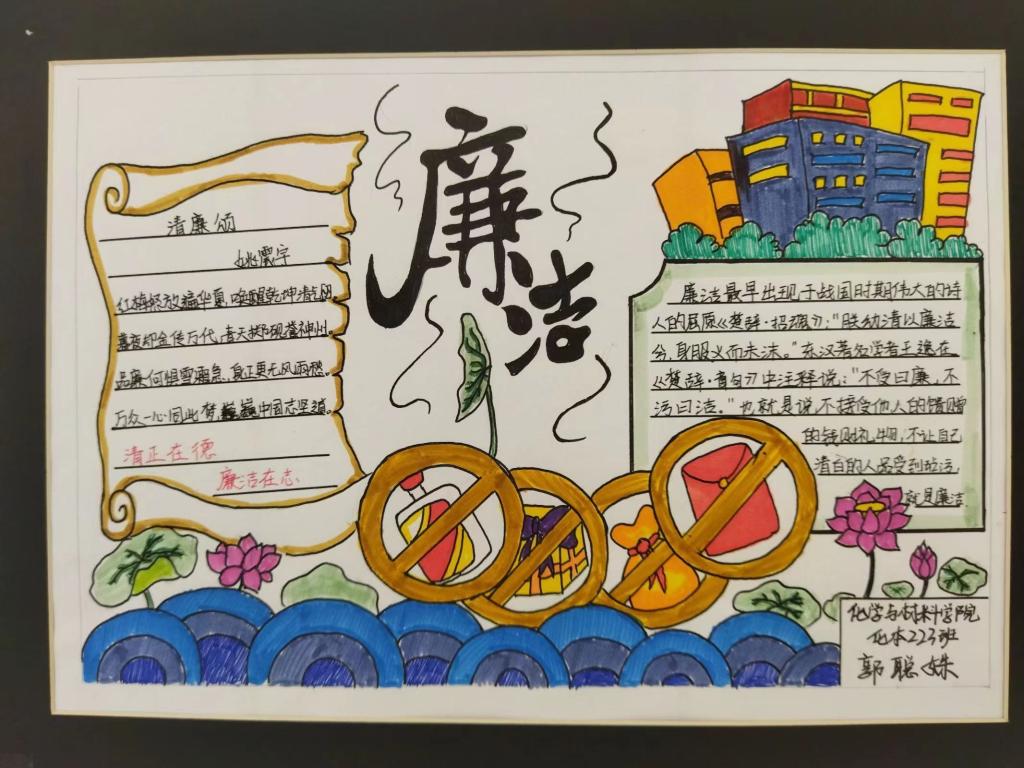 廉洁
清廉颂
姚震宇
红梅怒放福华夏,唤醒乾坤清气风
暮夜却金传万代,青天梦现誉神州。
品廉何惧雪雨急,身正更无风雨愁。
万众一心同此梦,巍巍中国志坚道。
清正在德
廉洁在志
廉洁最早出现于战国时期伟大的诗
人的屈原《楚辞·招魂》:"朕幼清以廉洁
兮,身服义而未沫。"东汉著名学者王逸在
《楚辞·章句》中注释说:"不受曰廉,不
污曰洁。"也就是说,不接受他人的馈赠
的钱财礼物,不让自己
清白的人品受到玷污
就是廉洁
化学与材料学院
化本223班
郭聪姝